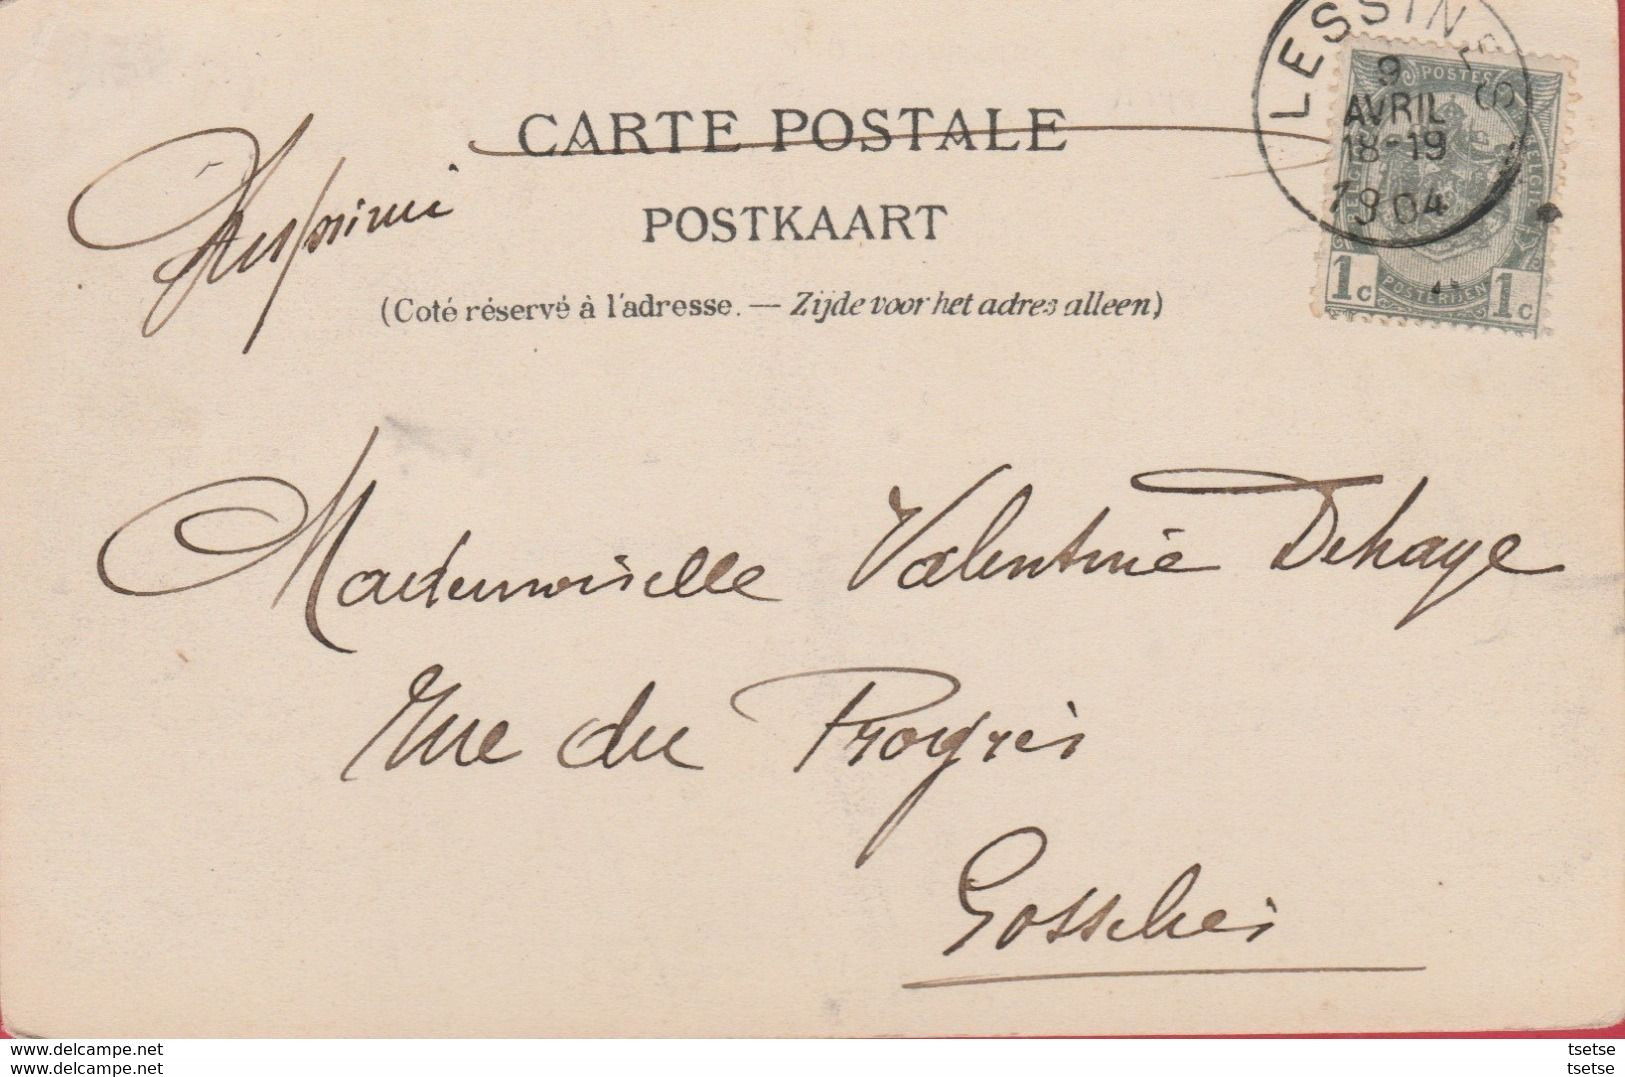 LESSINES
9
AVRIL
18-19
1904
POSTES
BELGIQUE
BELGIE
1c
POSTERIJEN
1c
CARTE POSTALE
Imprimé
POSTKAART
(Coté réservé à l'adresse. — Zijde voor het adres alleen)
Mademoiselle Valentine Dehaye
Rue du Progrès
Gosselies
www.delcampe.net
tsetse
www.delcampe.net
tsetse